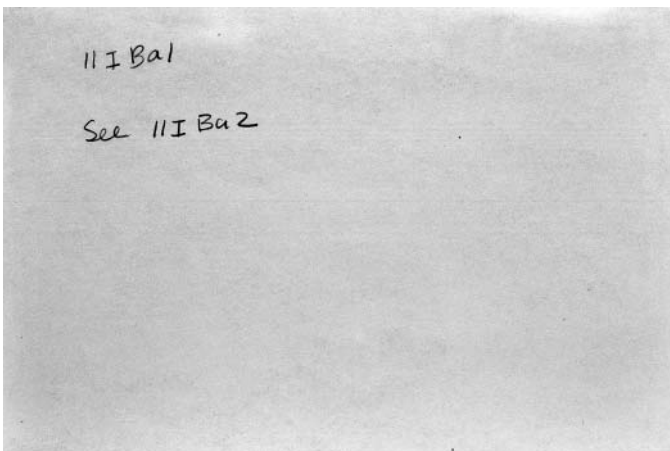 11 I Ba1
See 11 I Ba2